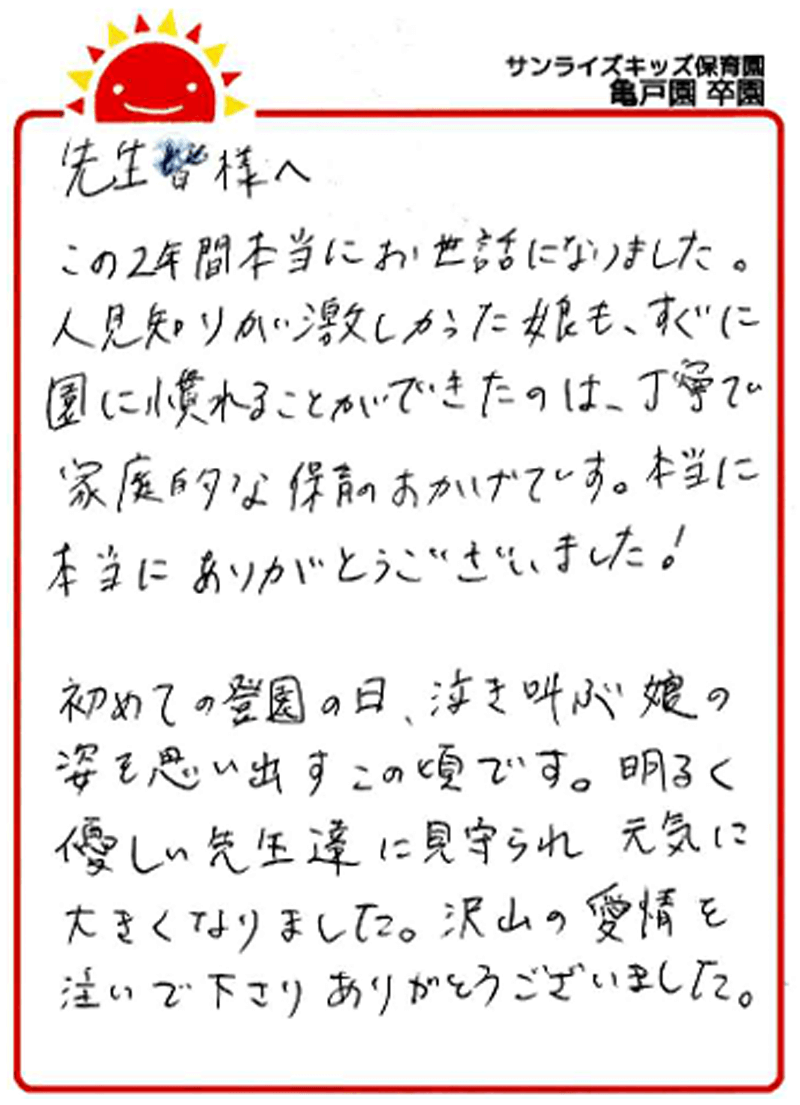 サンライズキッズ保育園
亀戸園 卒園
先生皆様へ
この2年間本当にお世話になりました。
人見知りが激しかった娘も、すぐに
園に慣れることができたのは、丁寧で
家庭的な保育のおかげです。本当に
本当にありがとうございました!
初めての登園の日、泣き叫ぶ娘の
姿を思い出すこの頃です。明るく
優しい先生達に見守られ 元気に
大きくなりました。沢山の愛情を
注いで下さりありがとうございました。